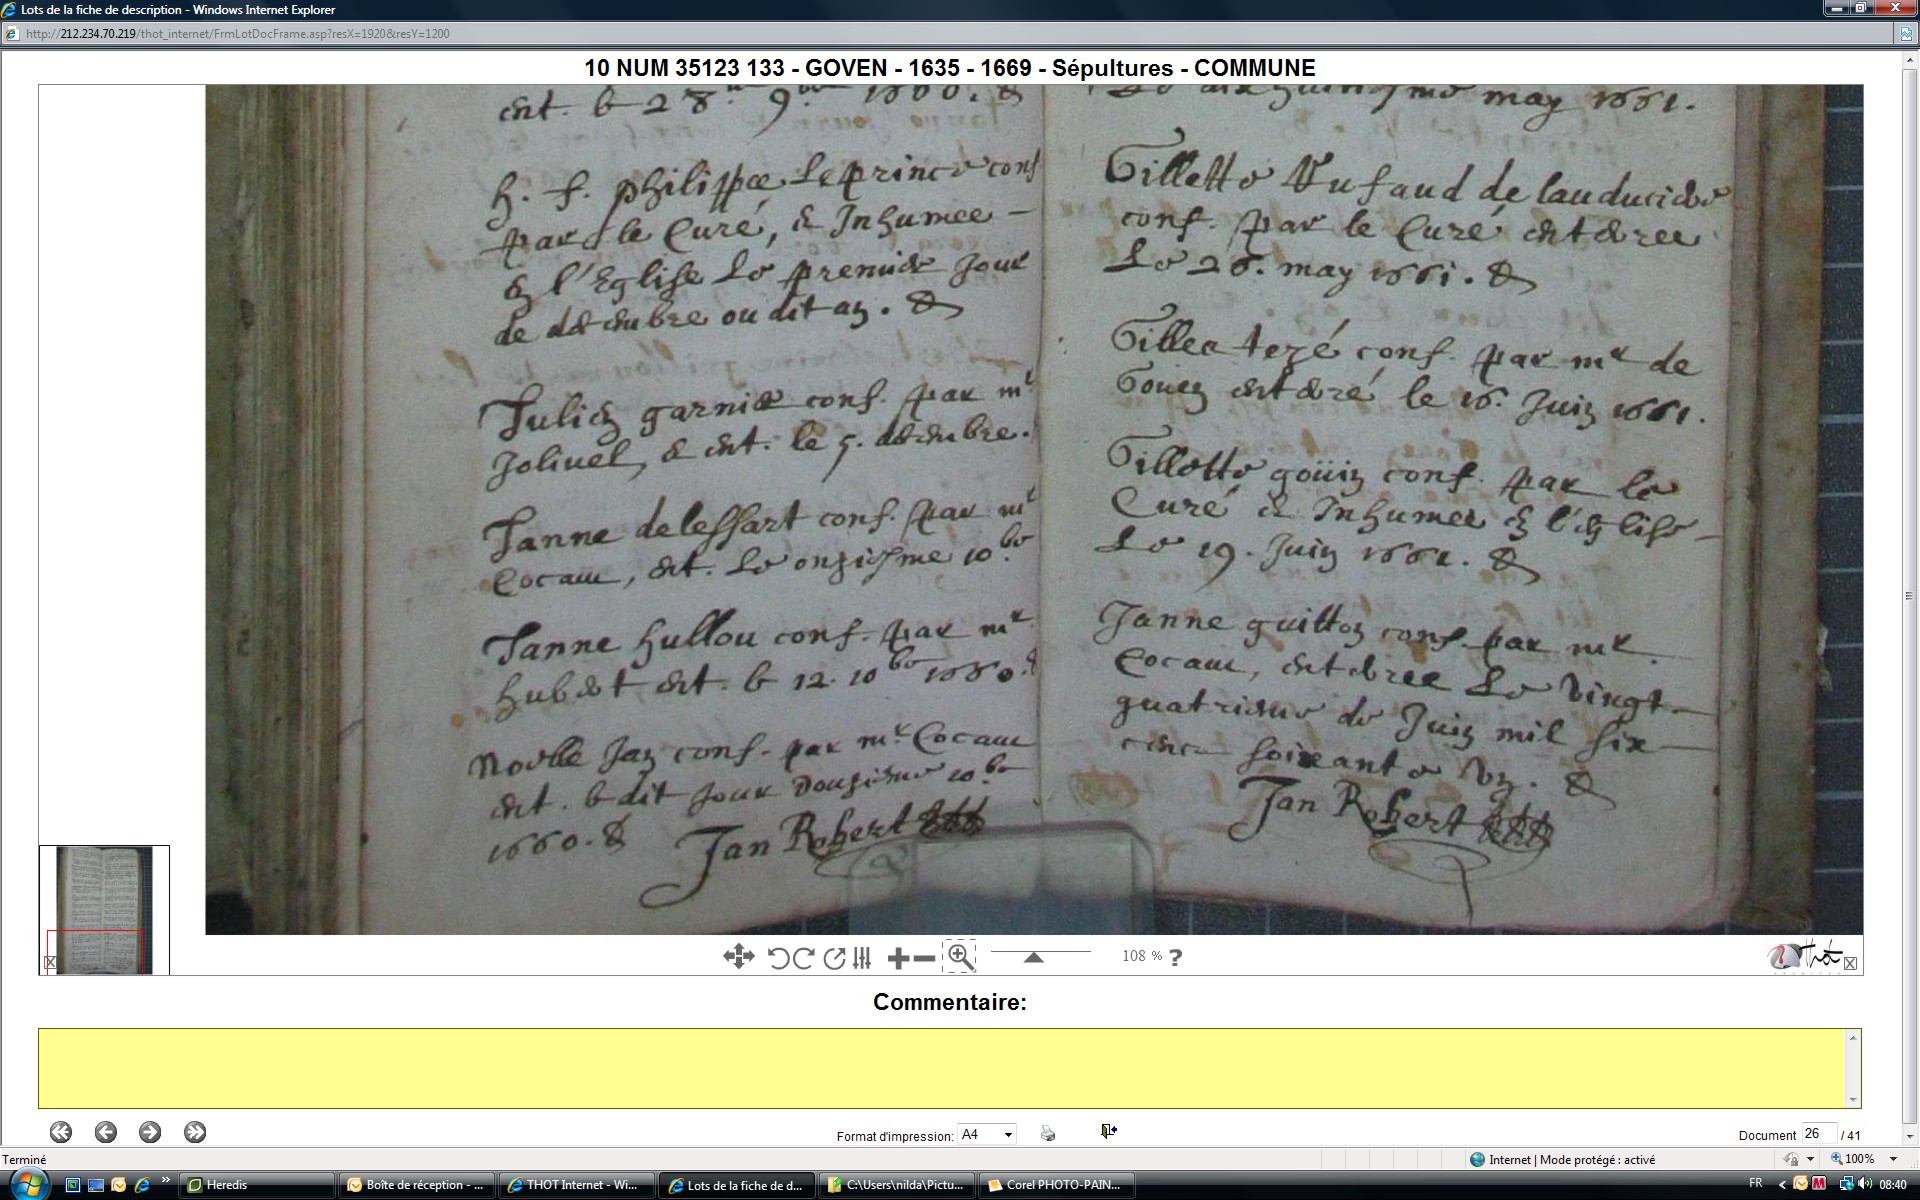 Lots de la fiche de description - Windows Internet Explorer
http://212.234.70.219/thot_internet/FrmLotDocFrame.asp?resX=1920&resY=1200
10 NUM 35123 133 - GOVEN - 1635 - 1669 - Sépultures - COMMUNE
ent. le 28 9bre 1660. &
h. f. philippe Leprince conf
par le Curé, & Inhumee -
en l'Eglise Le premier Jour
de decembre ou dit an. &
Julien garnier conf. par mr
Jolivel, & ent. le 5. decembre.
Janne delessart conf. par mr
Cocaut, ent. Le onziesme 10bre
Janne hullou conf. par mr
hubert ent. le 12. 10bre 1660. &
Noelle Jan conf. par mr Cocaut
ent. le dit jour Douziesme 10bre
1660. &
Jan Robert
may 1661.
Gillette de
conf. par le Curé enterree
Le 26. may 1661. &
Gilles conf. par mr de
Goven enterré le 16. Juin 1661.
Gillette goüin conf. par le
Curé & Inhumee en l'eglise -
Le 19. Juin 1661. &
Janne guitton conf. par mr
Cocaut, enterree Le Vingt -
quatriesme de Juin mil six -
cents soixante Un. &
Jan Robert
108 % ?
Thot
Commentaire:
Format d'impression: A4
Document 26 / 41
Terminé
Internet | Mode protégé : activé
100%
Heredis
Boîte de réception - ...
THOT Internet - Wi...
Lots de la fiche de d...
C:\Users\nilda\Pictu...
Corel PHOTO-PAIN...
FR
08:40